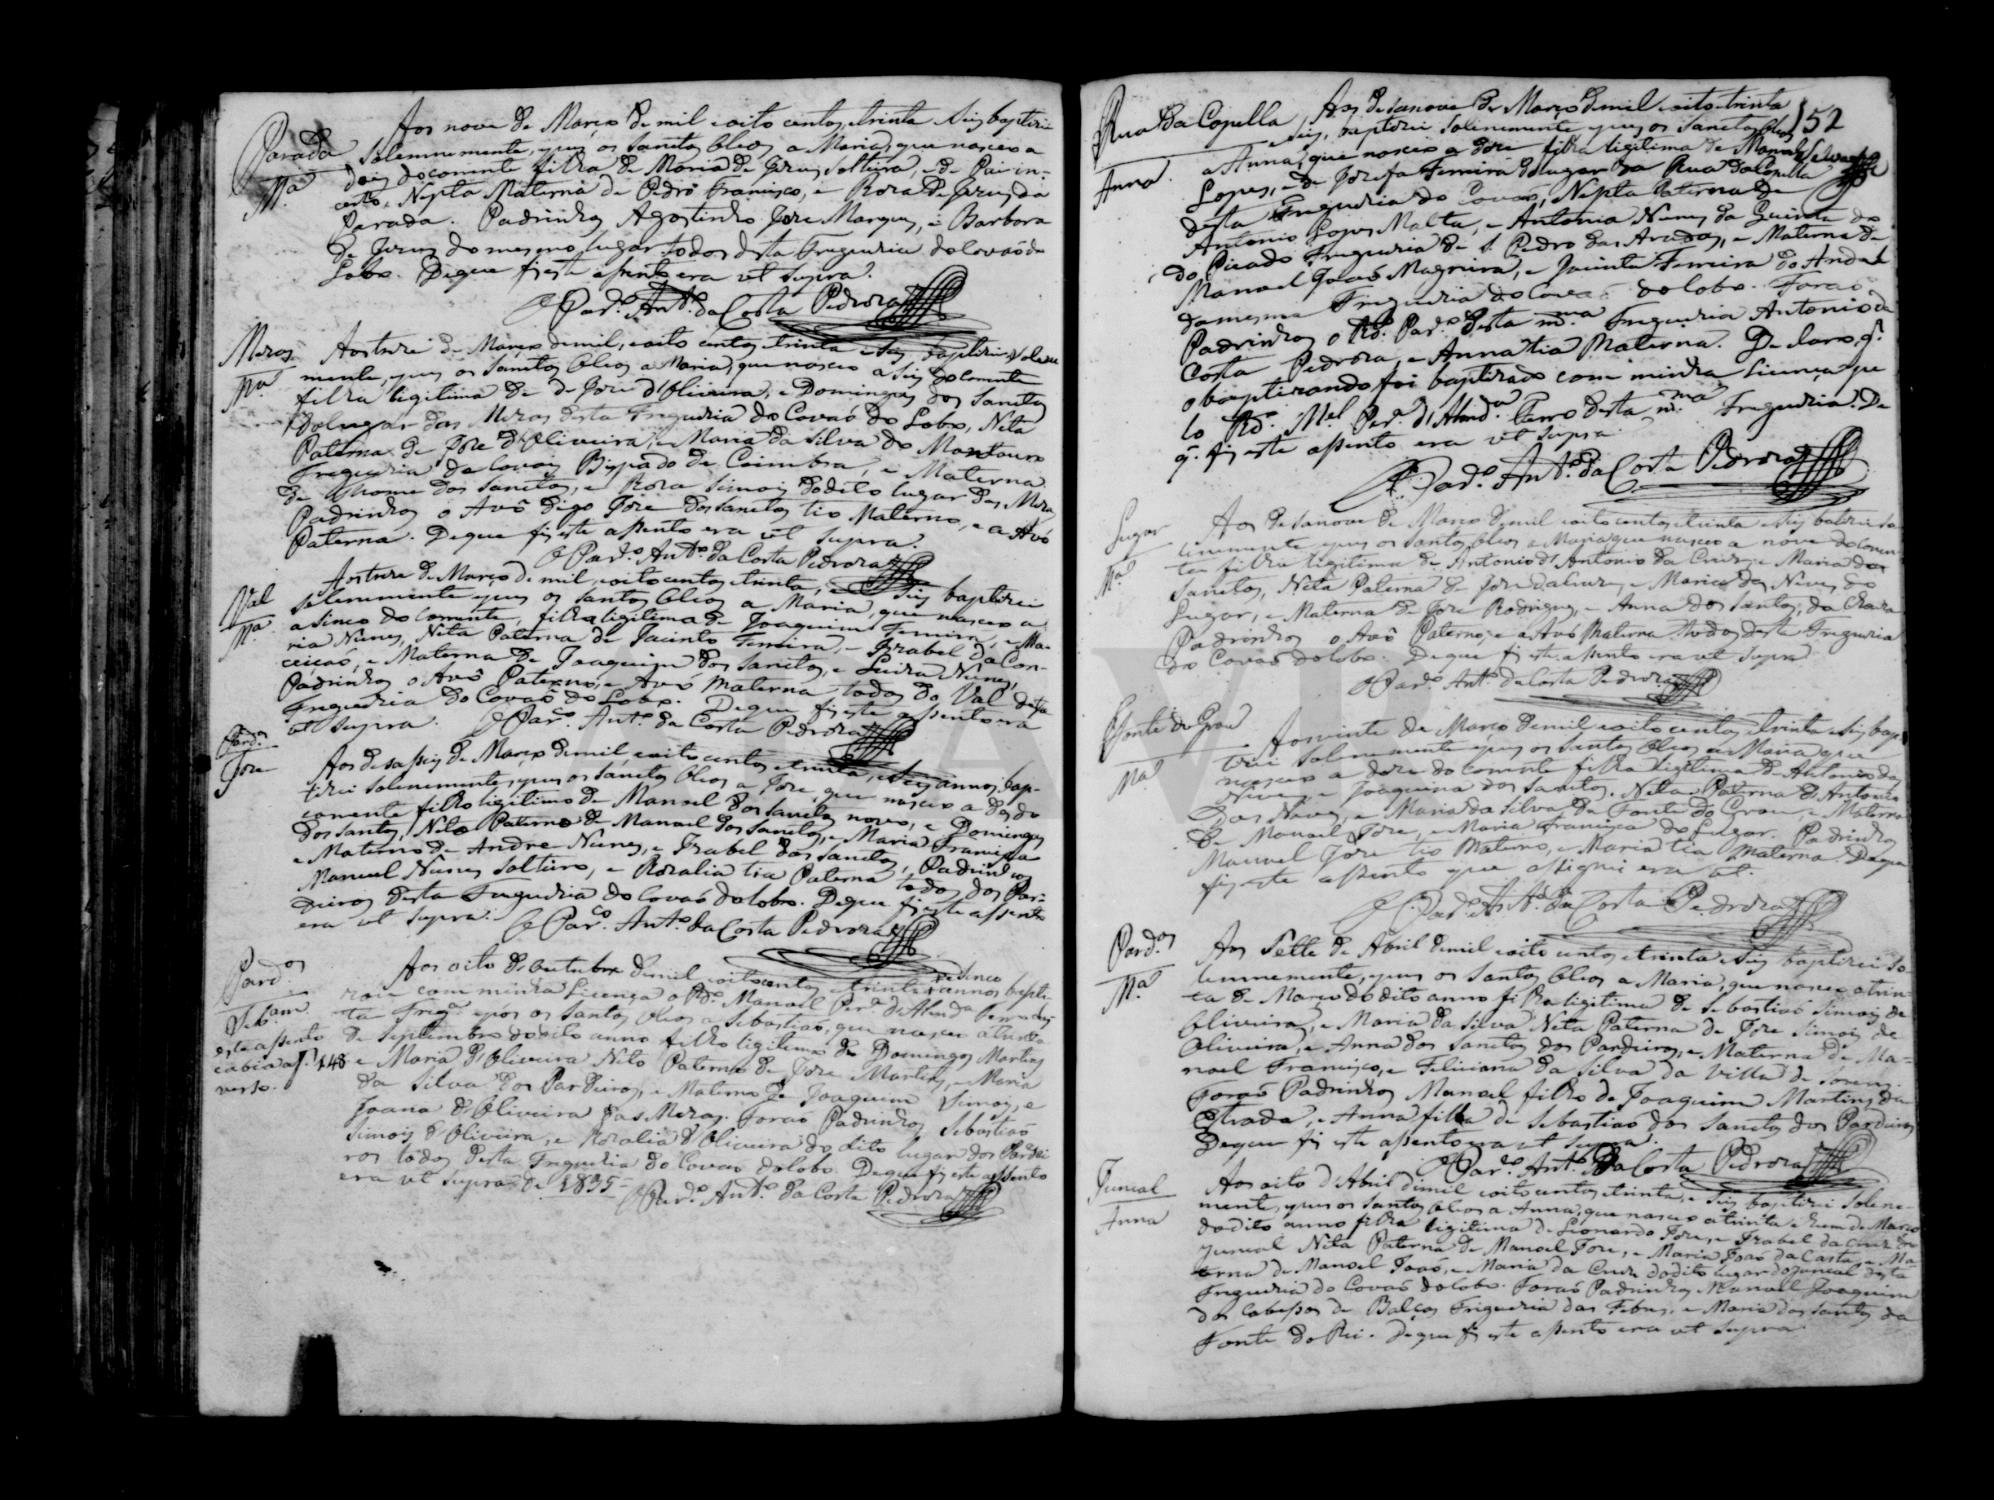 Parada
Mª
Aos nove de Março de mil e oito centos e trinta e Seis baptizei
solemnemente, e puz os Sanctos Oleos a Maria, que nasceo a
dois do corrente filha de Maria de Jezus, Solteira, e de Pai in-
certo, Nepta Materna de Pedro Francisco, e Roza de Jezus da
Parada. Padrinhos Agostinho Joze Marques, e Barbora
de Jezus do mesmo lugar todos desta Freguezia do Covaõ do
Lobo. De que fiz este assento era ut supra.
O Par.º Ant.º da Costa Pedroza
Meras
Mª
Aos treze de Março de mil, e oito centos e trinta e Seis baptizei, solemne
mente, e puz os Sanctos Oleos a Maria, que nasceo a Seis do corrente
filha legitima de de Joze d'Oliveira, e Domingas dos Sanctos
do lugar das Meras desta Freguezia do Covaõ do Lobo, Neta
Paterna de Joze d'Oliveira, e Maria da Silva do Montouro
Freguezia da Covois Bispado de Coimbra, e Materna
de Thome dos Sanctos, e Roza Simois do dito lugar das Meras
Padrinhos o Avô digo Joze dos Sanctos tio Materno, e a Avó
Paterna. De que fiz este assento era ut supra.
O Par.º Ant.º da Costa Pedroza
Val
Mª
Aos treze de Março de mil, e oito centos e trinta, e Seis baptizei
solemnemente e puz os Santos Oleos a Maria, que nasceo a
a sinco do corrente, filha legitima de Joaquim Ferreira, e Ma-
ria Nunes, Neta Paterna de Jacinto Ferreira, e Izabel da Con-
ceicaõ, e Materna de Joaquim dos Sanctos, e Luiza Nunes,
Padrinhos o Avô Paterno, e Avó Materna todos do Val desta
Freguezia do Covaõ do Lobo. De que fiz este assento era
ut supra. O Par.º Ant.º da Costa Pedroza
Pard.os
Joze
Aos desasseis de Março de mil, e oito centos e trinta, e Seis annos, bap-
tizei solemnemente, e puz os Sanctos Oleos a Joze, que nasceo a dez do
corrente filho legitimo de Manoel dos Sanctos novo, e Domingas
dos Santos, Neto Paterno de Manoel dos Sanctos, e Maria Francisca
e Materno de Andre Nunes, e Izabel dos Sanctos, Padrinhos
Manuel Nunes Solteiro, e Rozalia tia Paterna todos dos Par-
dieiros desta Freguezia do Covaõ do Lobo. De que fiz este assento
era ut supra. O Par.º Ant.º da Costa Pedroza
Pard.os
Sebam.
este assento
cabia a f. 148
verso.
Aos oito de Outubro de mil oito centos e trinta e sinco annos bapti-
zou com minha Licença o Rd.º Manoel Per.ª d'Almda
ta Freg.ª e pos os Santos Oleos a Sebastiaõ, que nasceu a trinta
de Septembro do dito anno filho legitimo de Domingos Martins
e Maria d'Oliveira Neto Paterno de Joze Martins, e Maria
da Silva dos Pardieiros, e Materno de Joaquim Simois, e
Joana d'Oliveira das Meras. Foraõ Padrinhos Sebastiaõ
Simois d'Oliveira, e Rozalia d'Oliveira do dito lugar dos Pardiei
ros todos desta Freguezia do Covaõ do Lobo. De que fiz este assento
era ut supra de 1835
O Par.º Ant.º da Costa Pedroza
152
Rua da Capella
Anna.
Aos desanove de Março de mil e oito e trinta
e Seis, baptizei solemnemente e puz os Sanctos Oleos
a Anna, que nasceo a doze filha legitima de Manoel
Lopes, e de Jozefa Ferreira do lugar da Rua da Capella
desta Freguezia do Covaõ, Nepta Paterna de
Antonio Lopes Malta, e Antonia Nunes da Quinta do
do Picado Freguezia de S. Pedro das Aradas, e Materna de
Manoel Joaõ Magreira, e Jacinta Ferreira do Andal
da mesma Freguezia do Covaõ do Lobo. Foraõ
Padrinhos o Rd.º Par.º desta m.ma Freguezia Antonio da
Costa Pedroza, e Anna tia Materna. Declaro, q.
o baptizando foi baptizado com minha Licença pe
lo Rd.º M.el Per.ª d'Almd.ª desta m.ma Freguezia. De
q. fiz este assento era ut supra.
O Par.º Ant.º da Costa Pedroza
Lugar
Mª
Aos desanove de Março de mil e oito centos e trinta e Seis batizei so-
lemnemente e puz os Santos Oleos a Maria que nasceo a nove do corren-
te filha legitima de Antonio d' Antonio da Cruz, e Maria dos
Sanctos, Neta Paterna de Joze da Cruz, e Maria das Neves do
Lugar, e Materna de Joze Rodrigues, e Anna dos Santos, da
Padrinhos o Avô Paterno, e a Avó Materna todos desta Freguezia
do Covaõ do Lobo. De que fiz este assento era ut supra
O Par.º Ant.º da Costa Pedroza
Fonte do Grou
Mª
Aos vinte de Março de mil e oito centos e trinta e Seis bap-
tizei solemnemente e puz os Santos Oleos a Maria que
nasceo a doze do corrente filha legitima de Antonio das
Neves, e Joaquina dos Santos. Neta Paterna de Antonio
das Neves, e Maria da Silva da Fonte do Grou, e Materna
de Manoel Joze, e Maria Francisca do Lugar. Padrinhos
Manuel Joze tio Materno, e Maria tia Materna. De que
fiz este assento que assignei era ut.
O Par.º Ant.º da Costa Pedroza
Pard.os
Mª
Aos Sette de Abril de mil e oito centos e trinta e Seis baptizei so-
lemnemente, e puz os Santos Oleos a Maria, que nasceo a trin-
ta de Março do dito anno filha legitima de Sebastiaõ Simois de
Oliveira, e Maria da Silva Neta Paterna de Joze Simois de
Oliveira, e Anna dos Sanctos dos Pardieiros, e Materna de Ma-
noel Francisco, e Feliciana da Silva da Villa de Soza.
Foraõ Padrinhos Manoel filho de Joaquim Martins da
Estrada, e Anna filha de Sebastiaõ dos Sanctos dos Pardieiros
De que fiz este assento era ut supra.
O Par.º Ant.º da Costa Pedroza
Junsal
Anna
Aos oito d'Abril de mil e oito centos e trinta, e Seis baptizei solene-
mente, e puz os santos Oleos a Anna, que nasceo a trinta e hum de Março
do dito anno filha legitima de Leonardo Joze, e Izabel da Cruz do
Junsal Neta Paterna de Manoel Joze, e Maria Joaõ da Costa, e Ma-
terna de Manoel Joaõ, e Maria da Cruz do dito lugar do Junsal desta
Freguezia do Covaõ do Lobo. Foraõ Padrinhos Manoel Joaquim
dos Cabessos de Balças Freguezia das Febres, e Maria dos Santos da
Fonte do Rei. De que fiz este assento era ut supra.